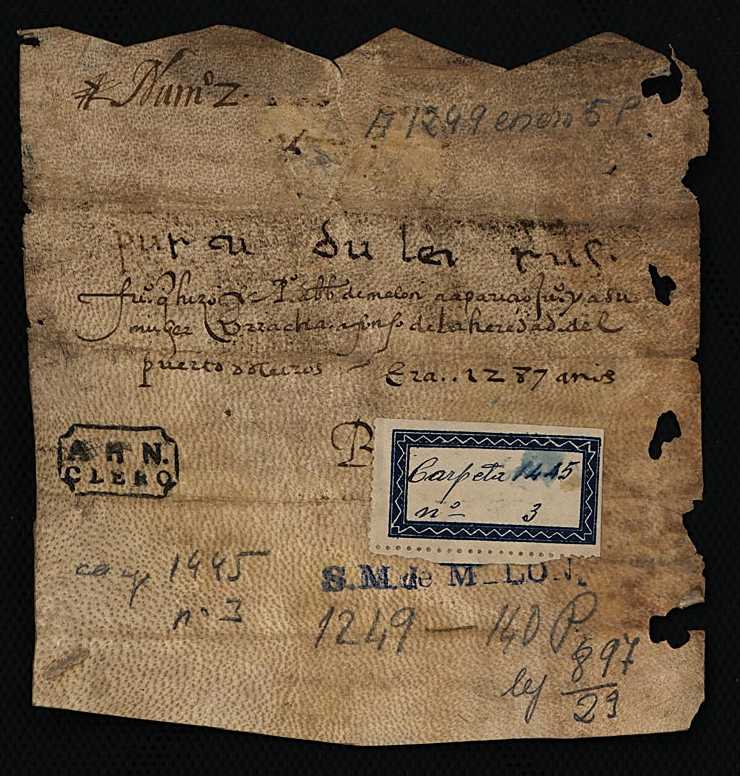 Numº 2.
A 1249 enero 5 P
fuº q hizo Pº abb de melon a aparicio fuº y a su
muger Orracha afonso de la heredad del
puerto Era.. 1287 anis
A H N.
CLERO
Carpeta 1445
nº 3
carp 1445
nº 3
S.M. de M_LON.
1249 — 140 P.
leg 897
29